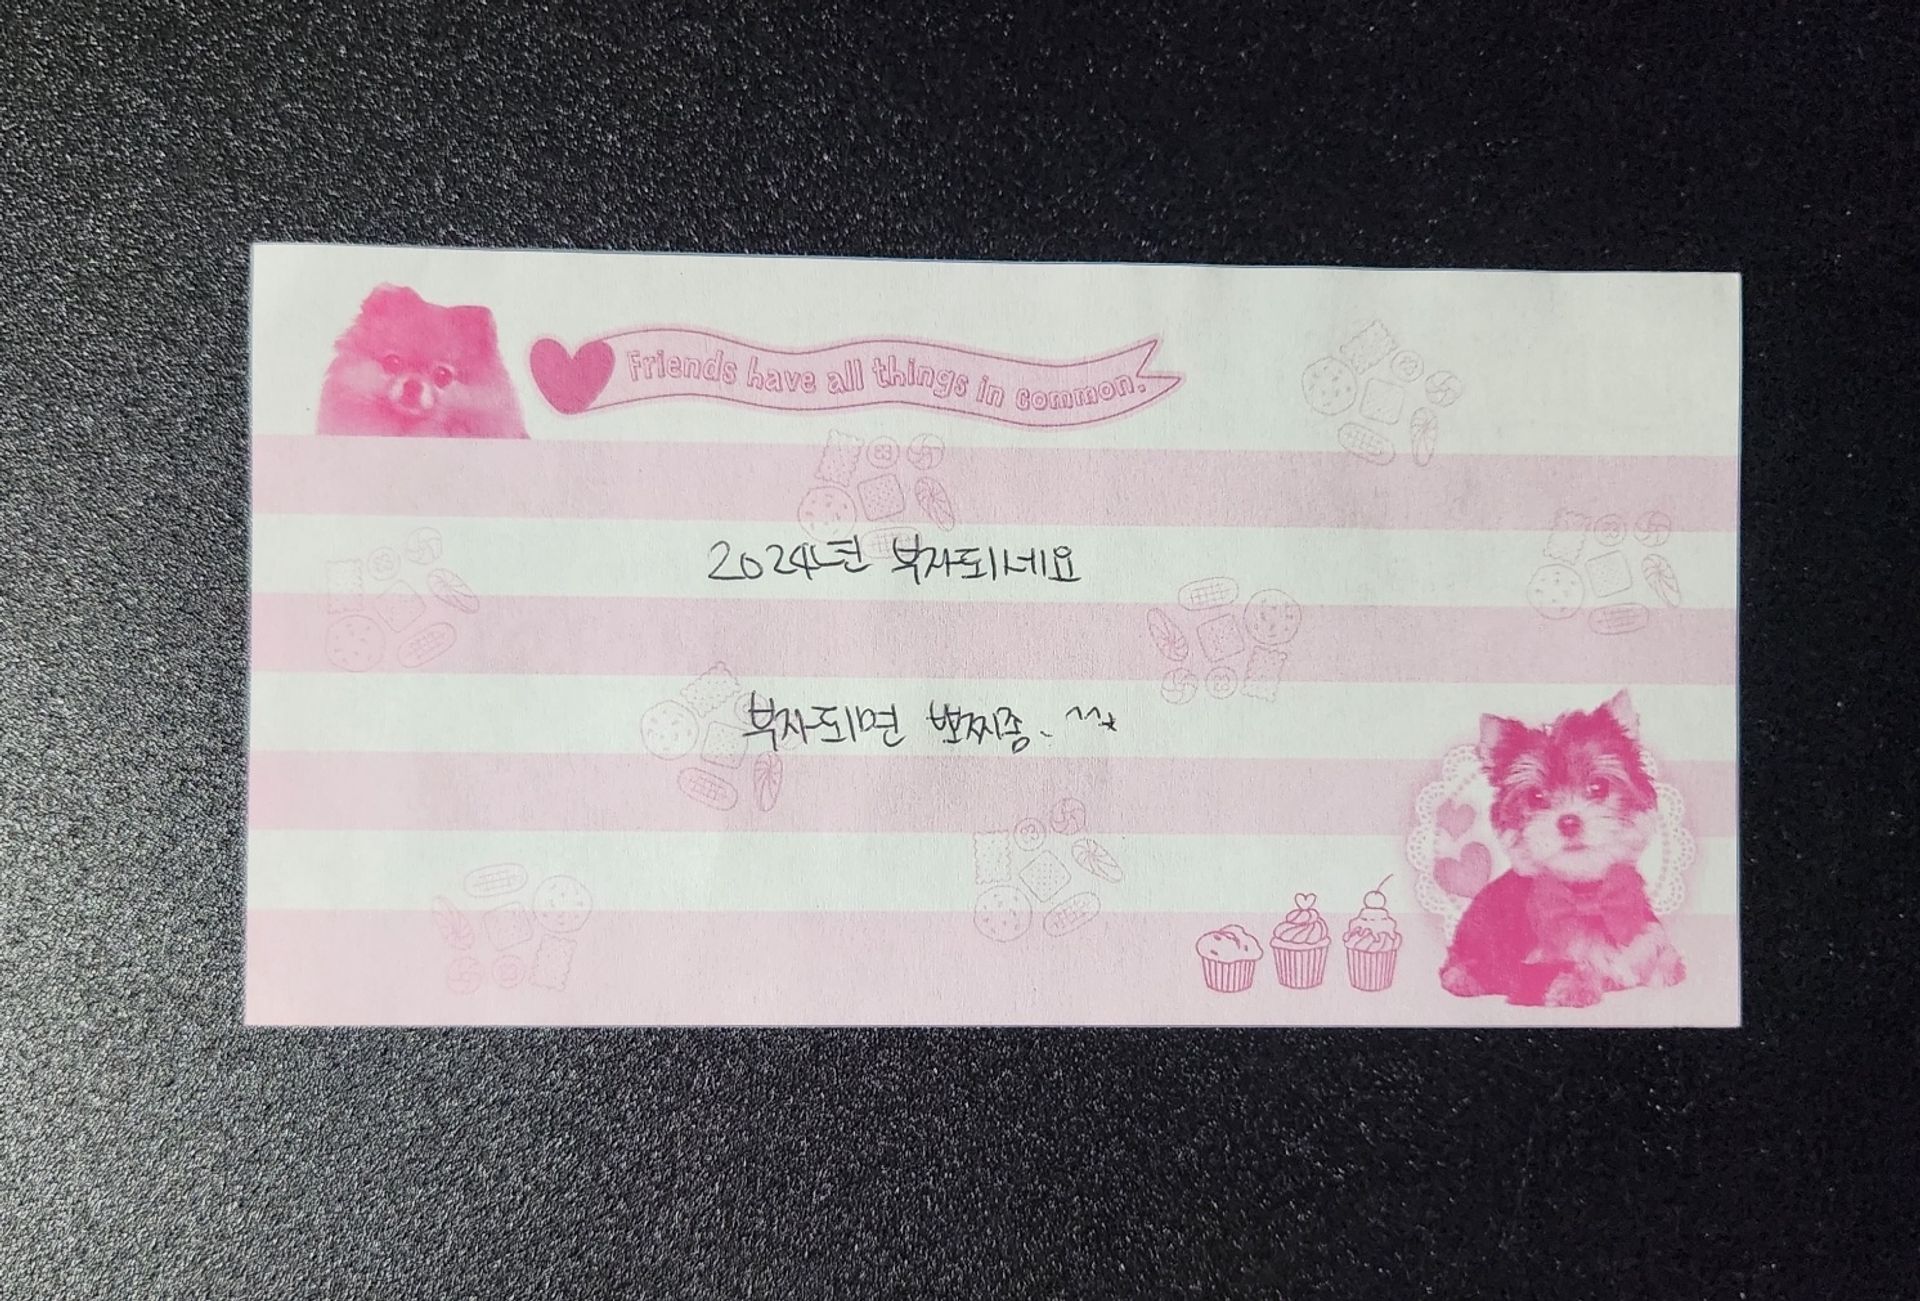 Friends have all things in common.
2024년 부자되세요
부자되면 뽀찌좀. ^^*